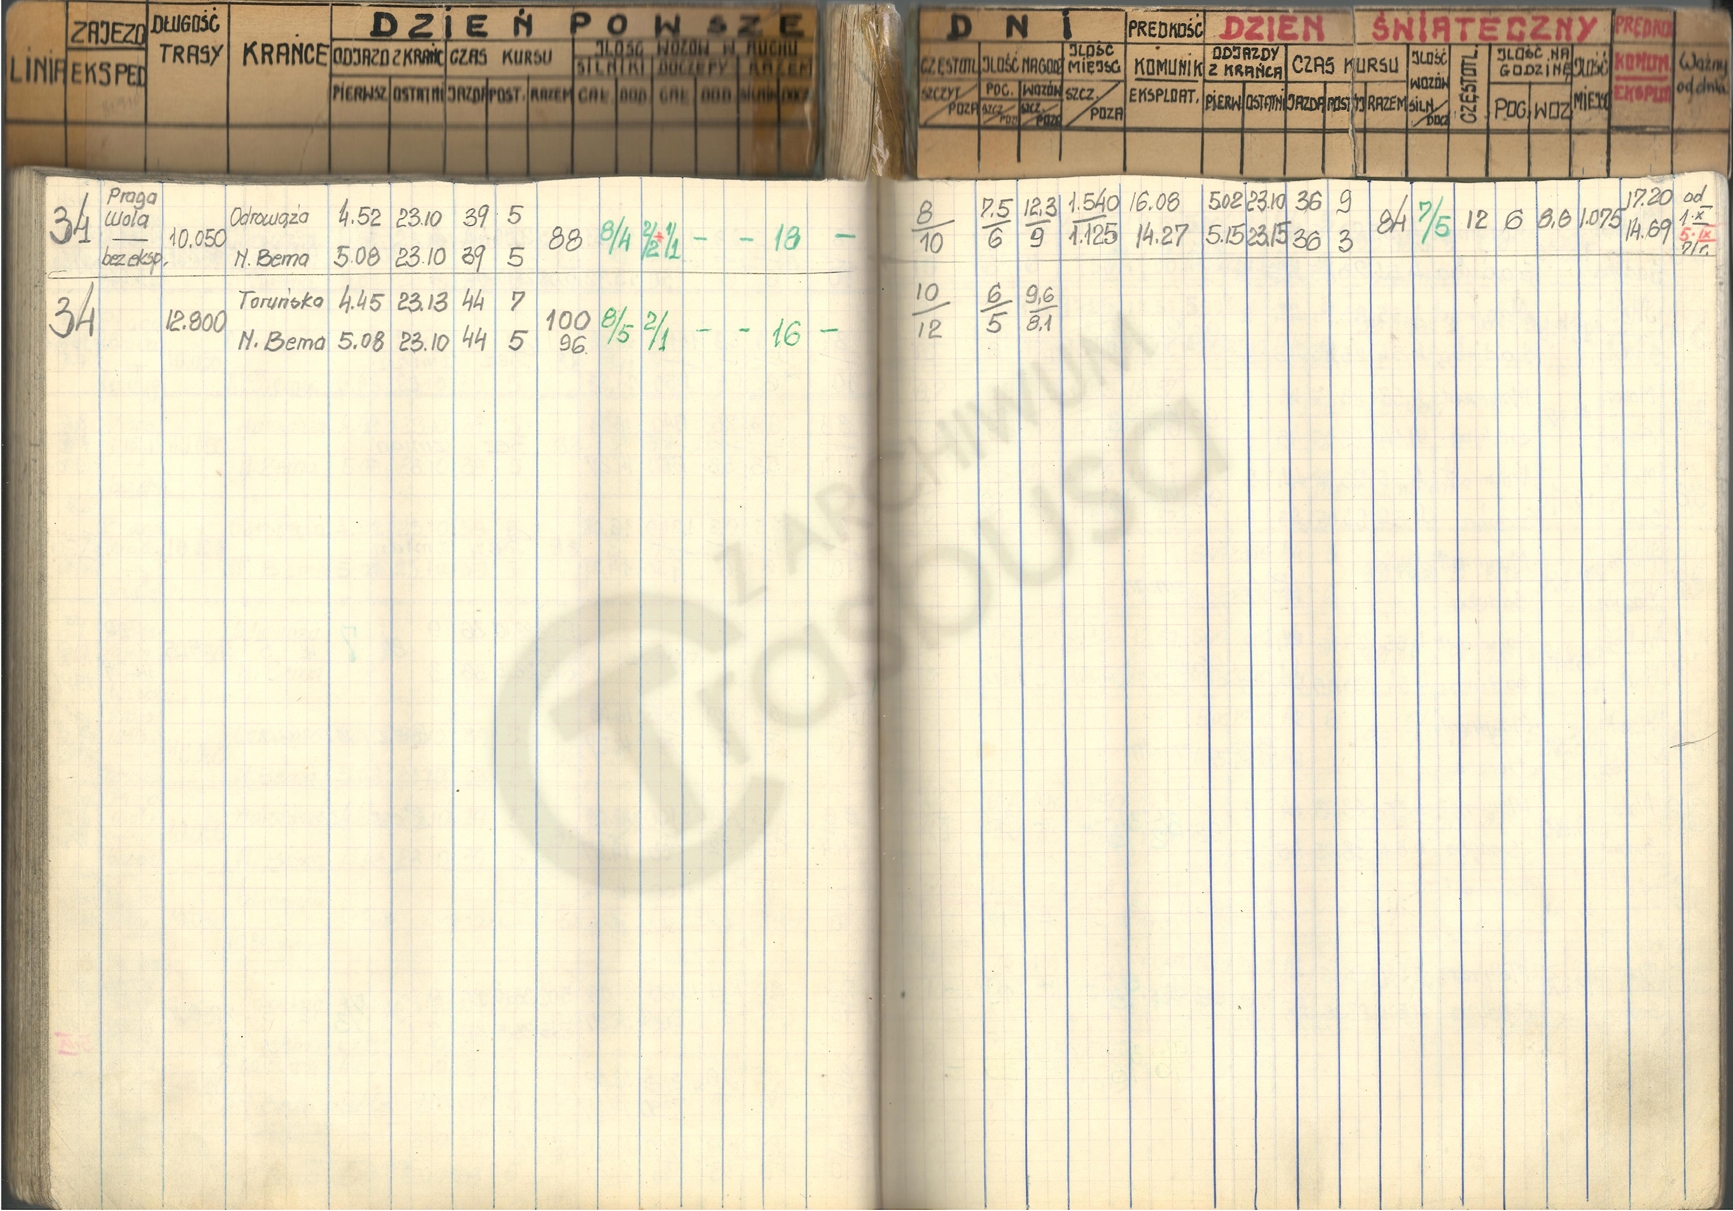 LINIA
ZAJEZD
EKSPED
DŁUGOŚĆ
TRASY
KRAŃCE
DZIEŃ POWSZE
ODJAZD Z KRAŃC
CZAS KURSU
ILOŚĆ WOZÓW W RUCHU
SILNIKI DOCZEPY RAZEM
PIERWSZ OSTATNI JAZDA POST. RAZEM CAŁ. DOD. CAŁ. DOD.
DNI
CZĘSTOTL
SZCZYT/POZA
ILOŚĆ NA GODZ
POC. WOZÓW
SZCZ./POZA SZCZ./POZA
ILOŚĆ
MIEJSC
SZCZ./POZA
PRĘDKOŚĆ
KOMUNIK
EKSPLOAT.
DZIEŃ ŚWIĄTECZNY
ODJAZDY
Z KRAŃCA
PIERW OSTATNI
CZAS KURSU
JAZDA POST RAZEM
ILOŚĆ
WOZÓW
SILN/DOCZ
CZĘSTOTL.
ILOŚĆ NA
GODZINĘ
POC. WOZ
ILOŚĆ
MIEJSC
PRĘDKO
KOMUN.
EKSPLO
Ważny
od dnia
34 Praga
Wola
bez eksp.
10.050
Odrowąża 4.52 23.10 39 5
M. Bema 5.08 23.10 39 5
88 8/4 2/2 + 1/1 - - 18 -
8/10 7.5/6 12.3/9 1.540/1.125
16.08
14.27
5.02 23.10 36 9
5.15 23.15 36 3
84 7/5 12 6 8,8 1.075
17.20
14.69
od
1.X
5.IX
n/r.
34 12.800
Toruńska 4.45 23.13 44 7
M. Bema 5.08 23.10 44 5
100
96
8/5 2/1 - - 16 -
10/12 6/5 9,6/8.1
Z ARCHIWUM
Trasbusa